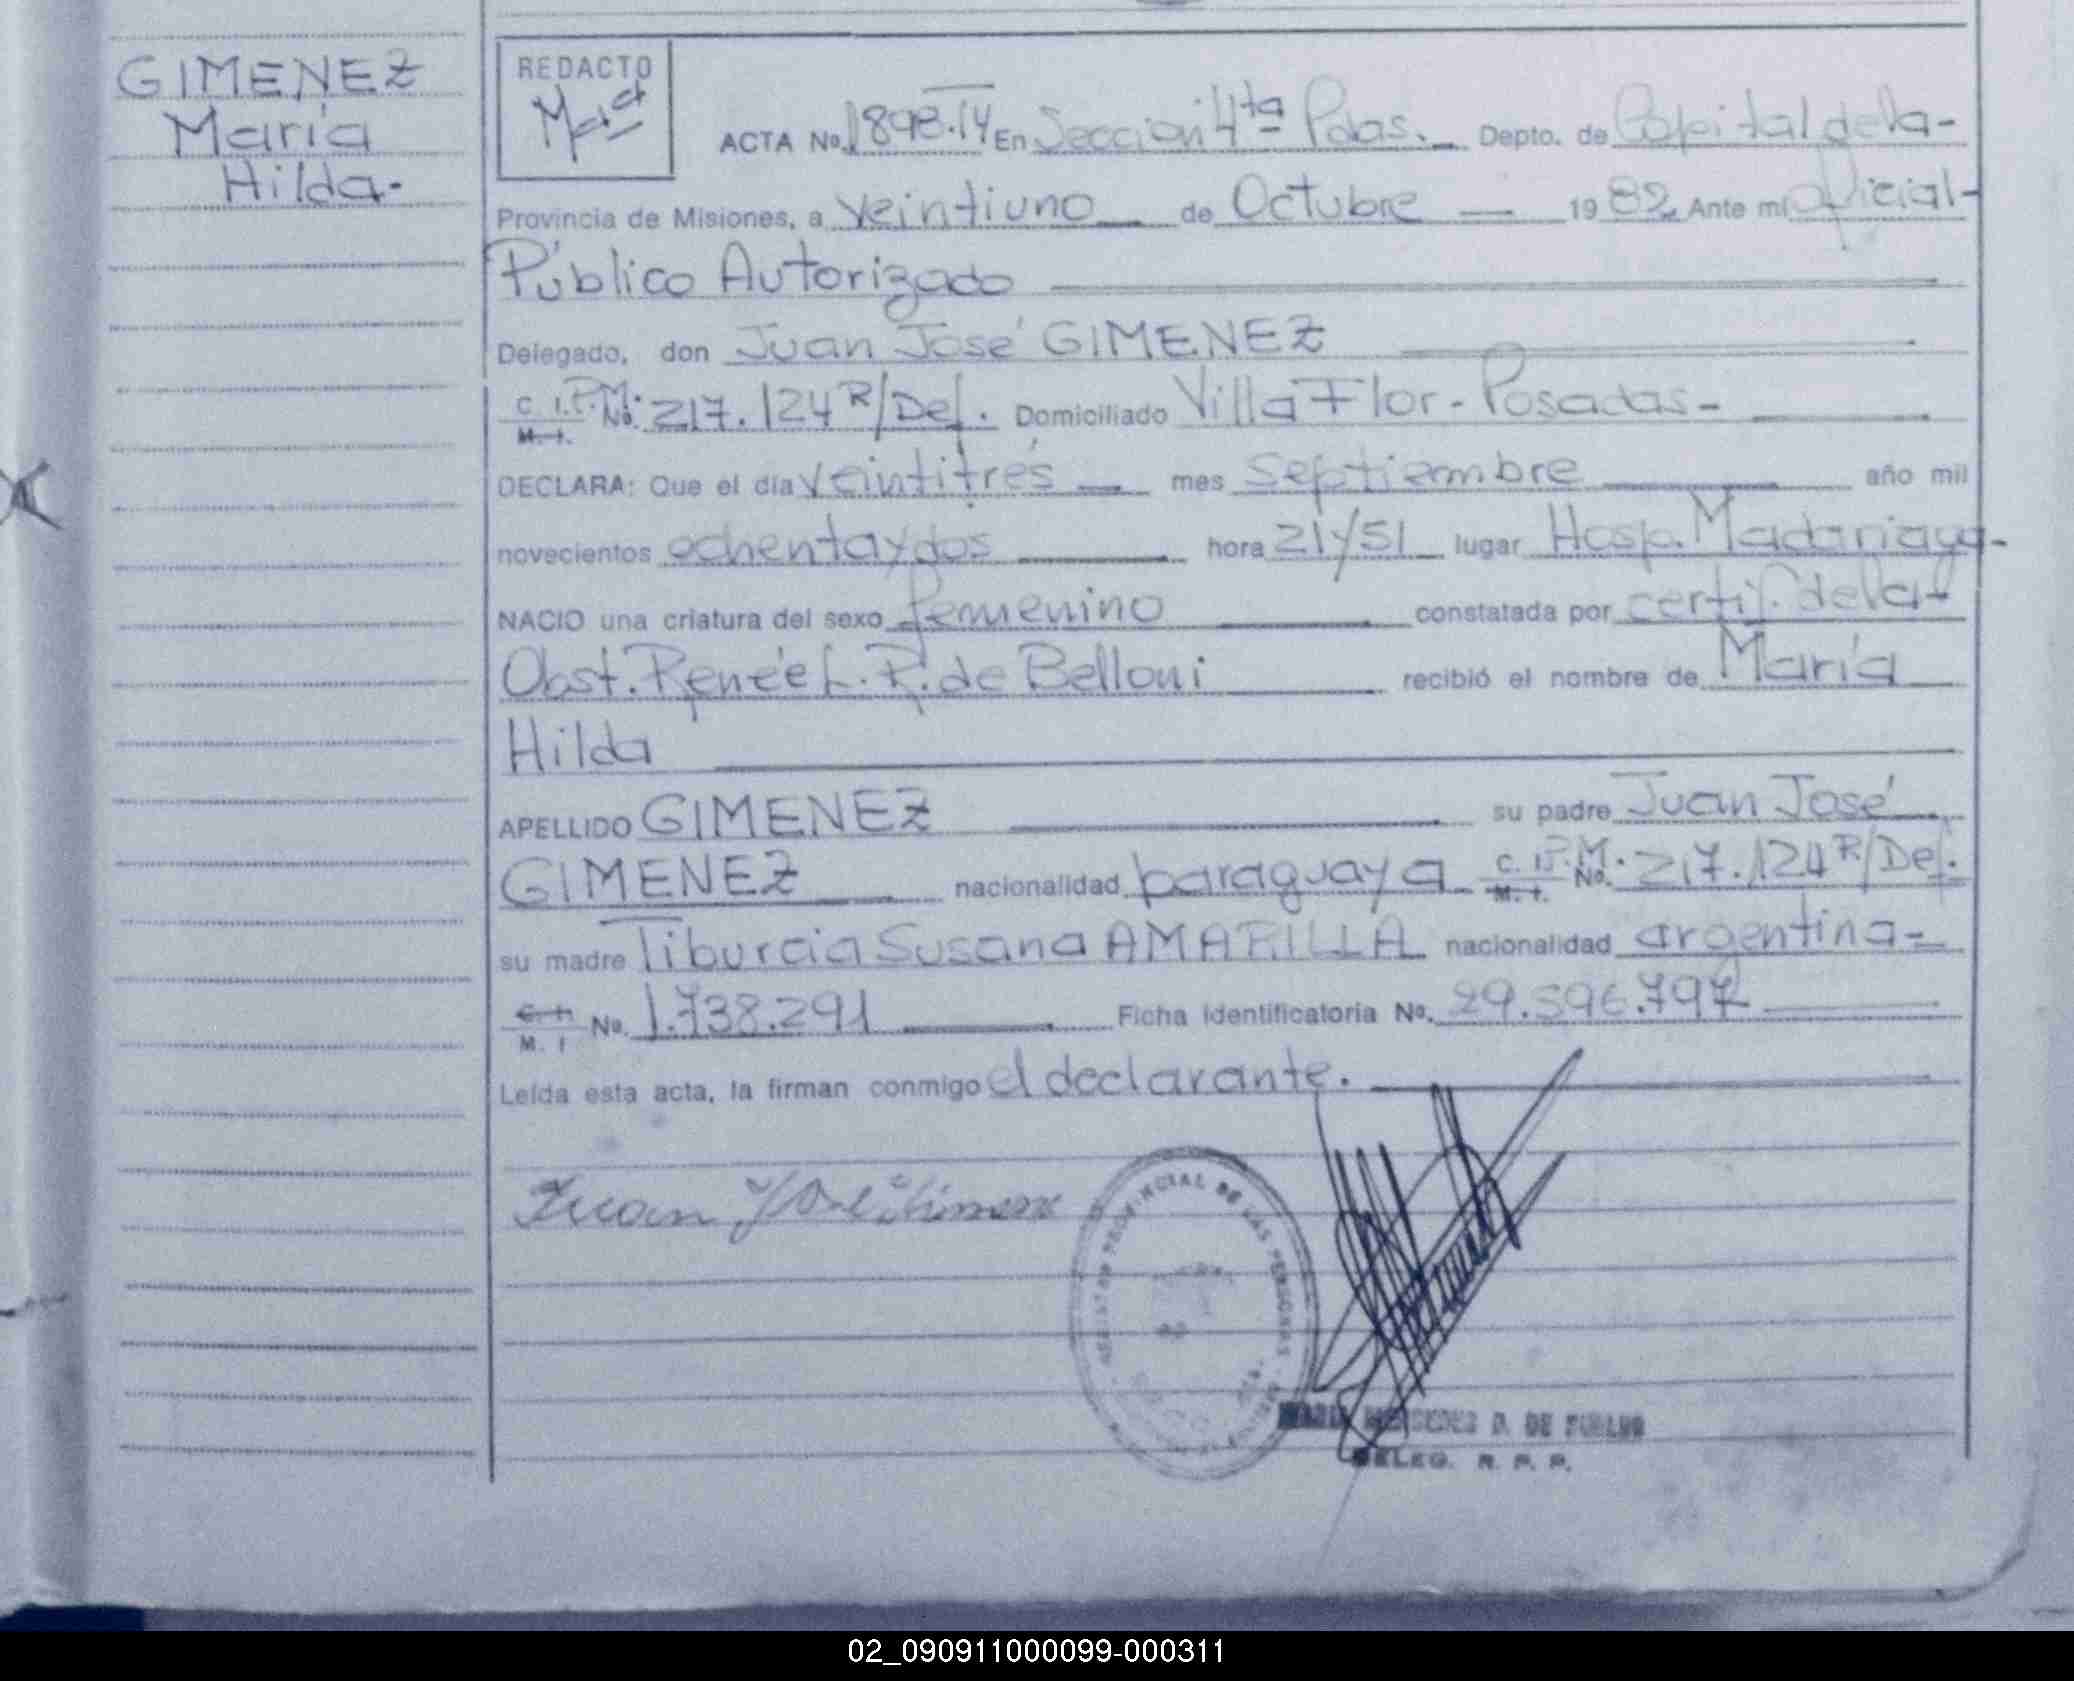 GIMENEZ
María
Hilda-
REDACTO
ACTA No. 1898.IV En Sección 4ta Pdas. Depto. de Capital de la-
Provincia de Misiones, a veintiuno de Octubre 1982 Ante mí oficial-
Público Autorizado
Delegado, don Juan José GIMENEZ
C. I.P.M. No. 217.124 R/Def. Domiciliado Villa Flor - Posadas -
M. I.
DECLARA: Que el día veintitrés mes Septiembre año mil
novecientos ochenta y dos hora 21 y 51 lugar Hosp. Madariaga-
NACIO una criatura del sexo femenino constatada por certif. de la-
Obst. Renée L. R. de Belloni recibió el nombre de María
Hilda
APELLIDO GIMENEZ su padre Juan José
GIMENEZ nacionalidad paraguaya C. I.P.M. No. 217.124 R/Def.
M. I.
su madre Tiburcia Susana AMARILLA nacionalidad argentina-
C. I. No. 1.738.291 Ficha Identificatoria No. 29.596.797
M. I
Leída esta acta, la firman conmigo el declarante.
Juan José Gimenez
REGISTRO PROVINCIAL DE LAS PERSONAS
MARIA MERCEDES D. DE
DELEG. R. P. P.
02_090911000099-000311